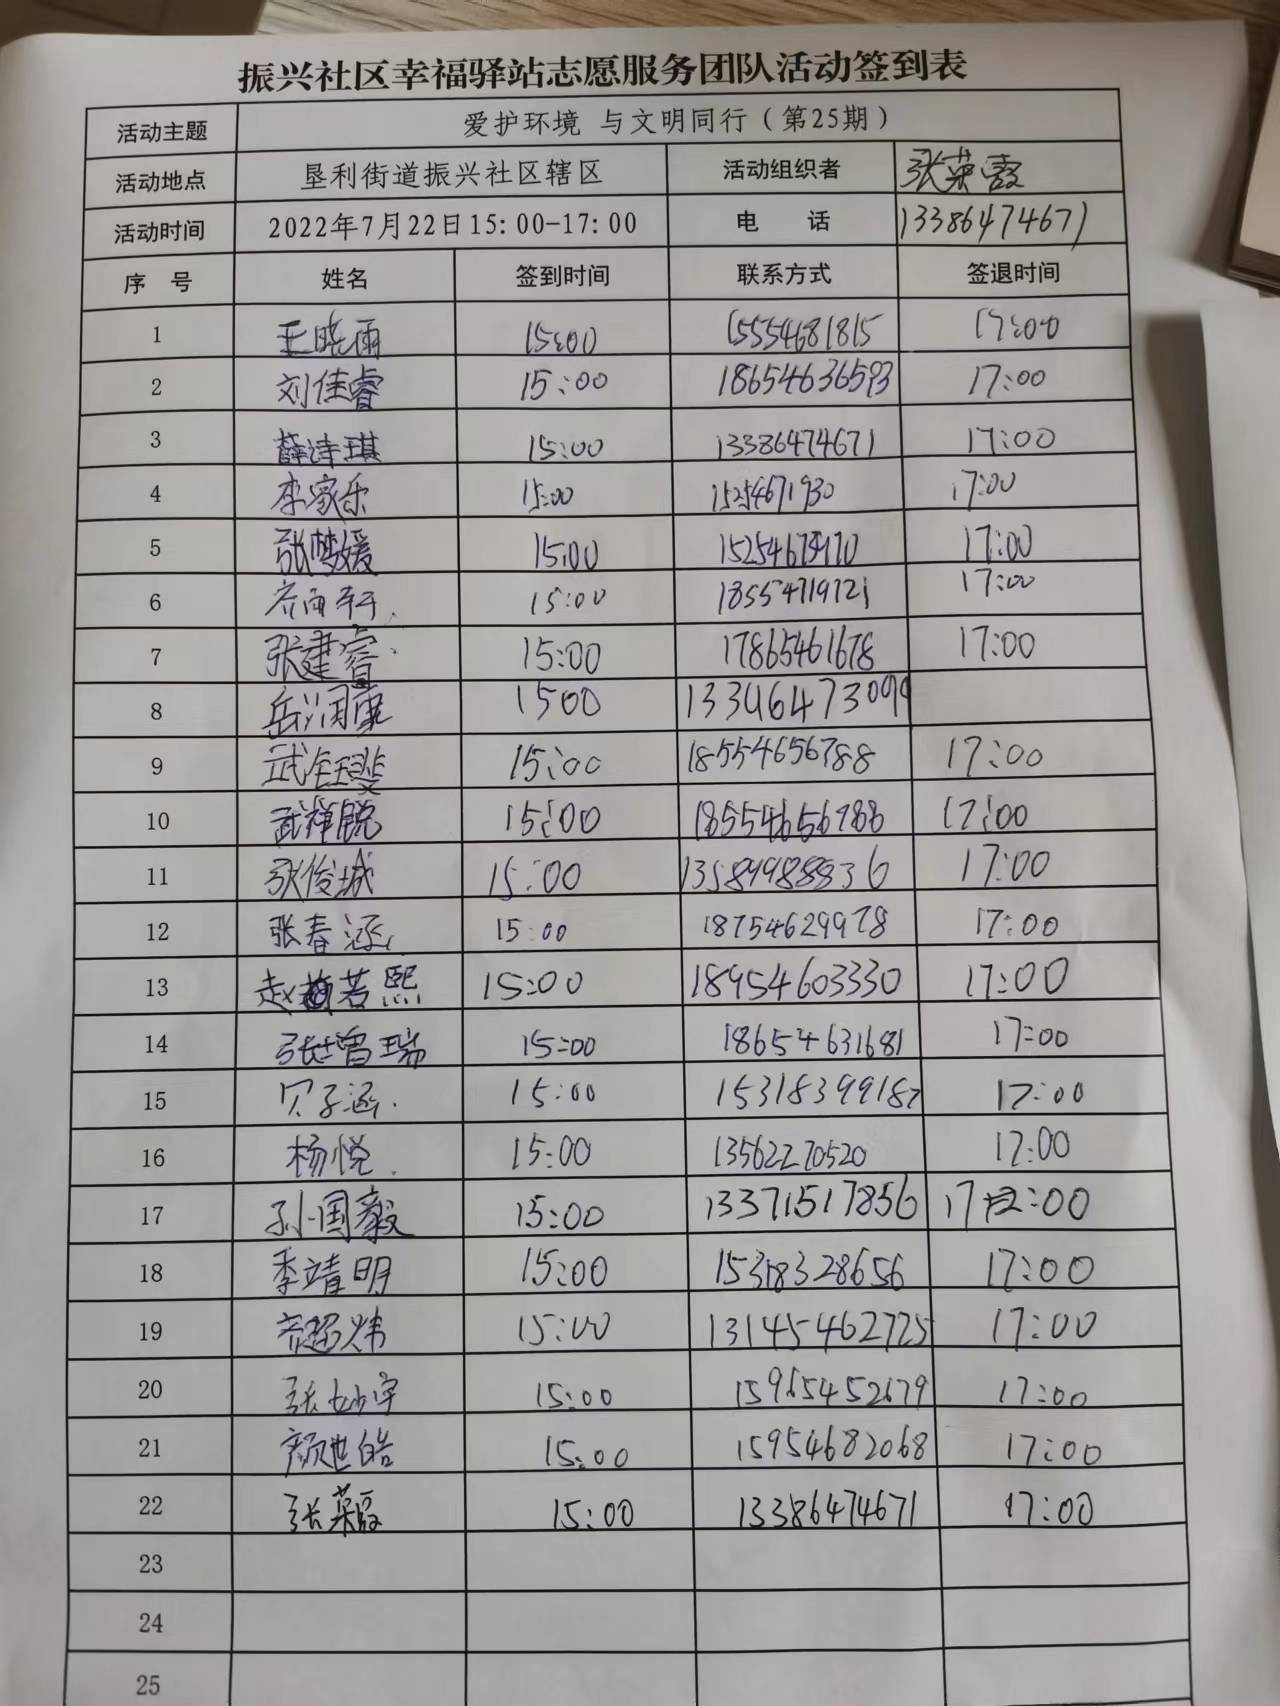 振兴社区幸福驿站志愿服务团队活动签到表
活动主题 爱护环境 与文明同行（第25期）
活动地点 垦利街道振兴社区辖区 活动组织者 张荣霞
活动时间 2022年7月22日15:00-17:00 电 话 13386474671
序 号 姓名 签到时间 联系方式 签退时间
1 王晓雨 15:00 15554681815 17:00
2 刘佳睿 15:00 18654636593 17:00
3 薛诗琪 15:00 13386474671 17:00
4 李家乐 15:00 15254671930 17:00
5 张梦媛 15:00 17:00
6 齐雨轩 15:00 18554719721 17:00
7 张建睿 15:00 17865461678 17:00
8 岳润康 1500
9 15:00 18554656788 17:00
10 武祥锐 15:00 18554656788 17:00
11 张俊城 15:00 17:00
12 张春涵 15:00 18754629978 17:00
13 赵若熙 15:00 18954603330 17:00
14 张增瑞 15:00 18654631681 17:00
15 15:00 15318399187 17:00
16 杨悦 15:00 13562270520 17:00
17 孙国毅 15:00 13371517856 17:00
18 季靖明 15:00 15318328656 17:00
19 齐超炜 15:00 13145462725 17:00
20 张妙宇 15:00 15965452679 17:00
21 颜世皓 15:00 15954682068 17:00
22 张荣霞 15:00 13386474671 17:00
23
24
25